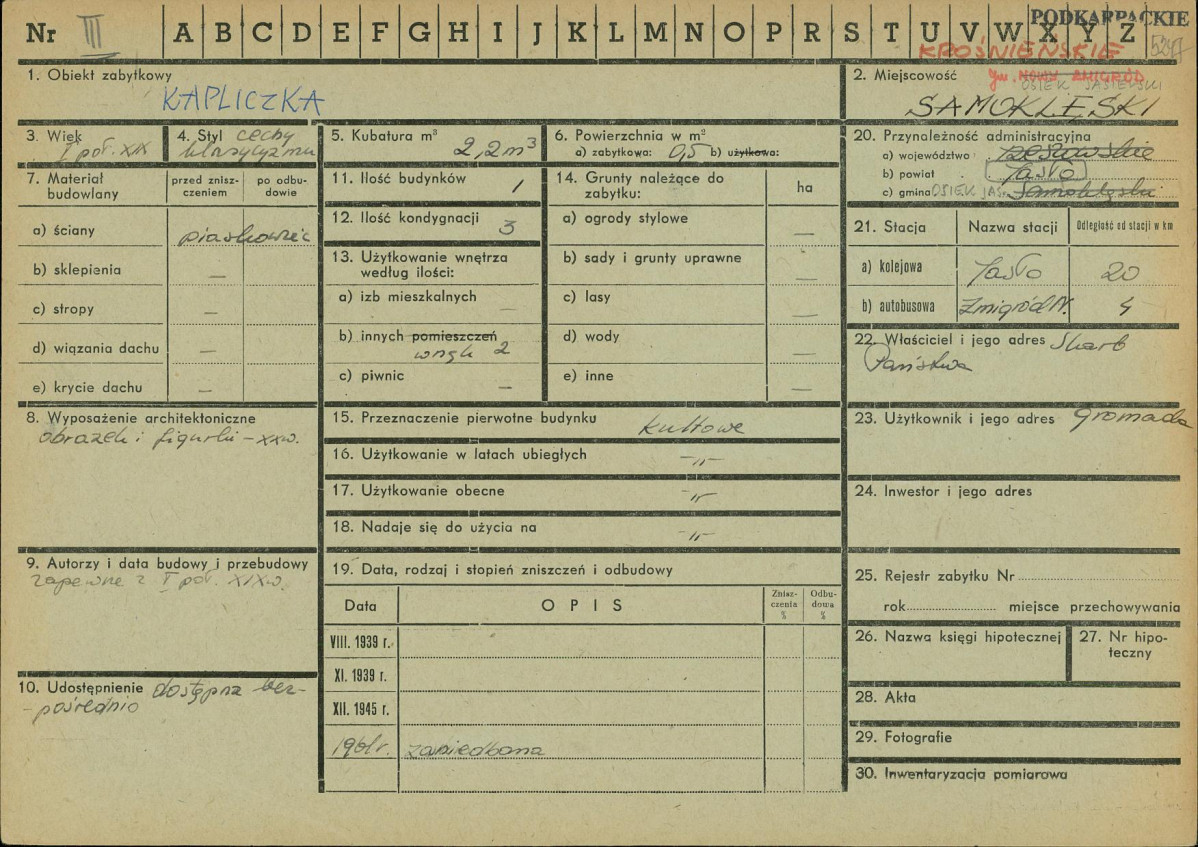 Nr III A B C D E F G H I J K L M N O P R S T U V W X Y Z
PODKARPACKIE
KROŚNIEŃSKIE
1. Obiekt zabytkowy
KAPLICZKA
2. Miejscowość
gm. NOWY ŻMIGRÓD
OSIEK JASIELSKI
SAMOKLĘSKI
3. Wiek
I poł. XIX
4. Styl cechy
klasycyzmu
5. Kubatura m³
2,2 m³
6. Powierzchnia w m²
a) zabytkowa: 0,5 b) użytkowa:
7. Materiał
budowlany
przed znisz-
czeniem
po odbu-
dowie
a) ściany piaskowiec
b) sklepienia —
c) stropy —
d) wiązania dachu —
e) krycie dachu —
8. Wyposażenie architektoniczne
obrazek i figurki – XX w.
9. Autorzy i data budowy i przebudowy
zapewne z I poł. XIX w.
10. Udostępnienie dostępna bez-
-pośrednio
11. Ilość budynków 1
12. Ilość kondygnacji 3
13. Użytkowanie wnętrza
według ilości:
a) izb mieszkalnych —
b) innych pomieszczeń
wnęk 2
c) piwnic —
14. Grunty należące do
zabytku:
ha
a) ogrody stylowe —
b) sady i grunty uprawne —
c) lasy —
d) wody —
e) inne —
15. Przeznaczenie pierwotne budynku kultowe
16. Użytkowanie w latach ubiegłych –"–
17. Użytkowanie obecne –"–
18. Nadaje się do użycia na –"–
19. Data, rodzaj i stopień zniszczeń i odbudowy
Data OPIS
Znisz-
czenia
%
Odbu-
dowa
%
VIII. 1939 r.
XI. 1939 r.
XII. 1945 r.
1961 r. zaniedbana
20. Przynależność administracyjna
a) województwo rzeszowskie
b) powiat Jasło
c) gmina OSIEK JAS. Samoklęski
21. Stacja Nazwa stacji Odległość od stacji w km
a) kolejowa Jasło 20
b) autobusowa Żmigród N. 4
22. Właściciel i jego adres Skarb
Państwa
23. Użytkownik i jego adres gromada
24. Inwestor i jego adres
25. Rejestr zabytku Nr
rok miejsce przechowywania
26. Nazwa księgi hipotecznej
27. Nr hipo-
teczny
28. Akta
29. Fotografie
30. Inwentaryzacja pomiarowa